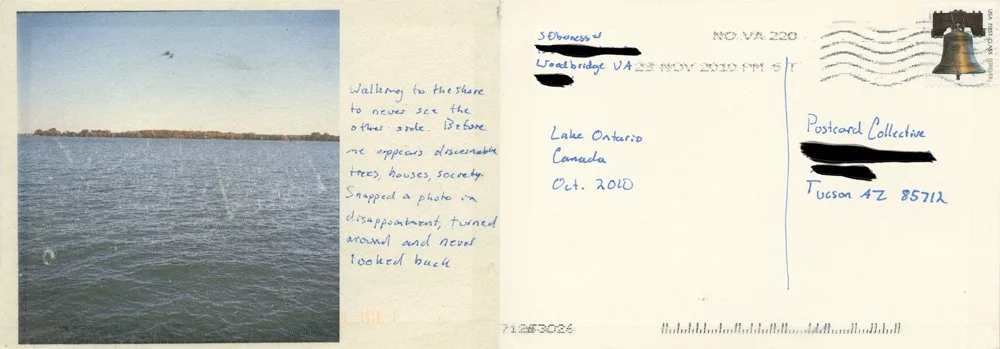 Walking to the shore
to never see the
other side. Before
me appears discernable
trees, houses, society.
Snapped a photo in
disappointment, turned
around and never
looked back
Woodbridge VA
NO VA 220
23 NOV 2010 PM 5 T
USA FIRST-CLASS FOREVER
Lake Ontario
Canada
Oct. 2010
Postcard Collective
Tucson AZ 85712